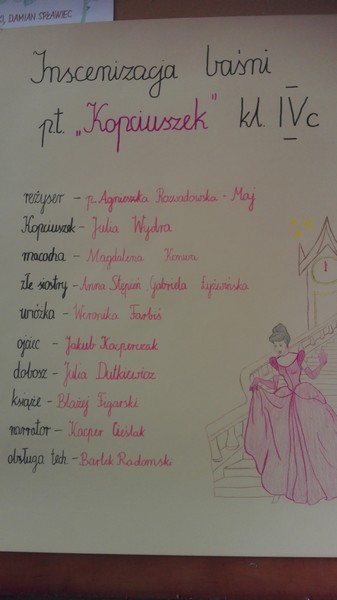 DAMIAN SPŁAWIEC
Inscenizacja baśni
p.t. „Kopciuszek" kl. IVc
reżyser - p. Agnieszka Rawadowska - Maj
Kopciuszek - Julia Wydra
macocha - Magdalena Korwa
złe siostry - Anna Stępień Gabriela Łyżwińska
wróżka - Weronika Farbiś
ojciec - Jakub Kacperczak
dobosz - Julia Dutkiewicz
książe - Błażej Figarski
narrator - Kacper Cieślak
obsługa tech. - Bartek Radomski